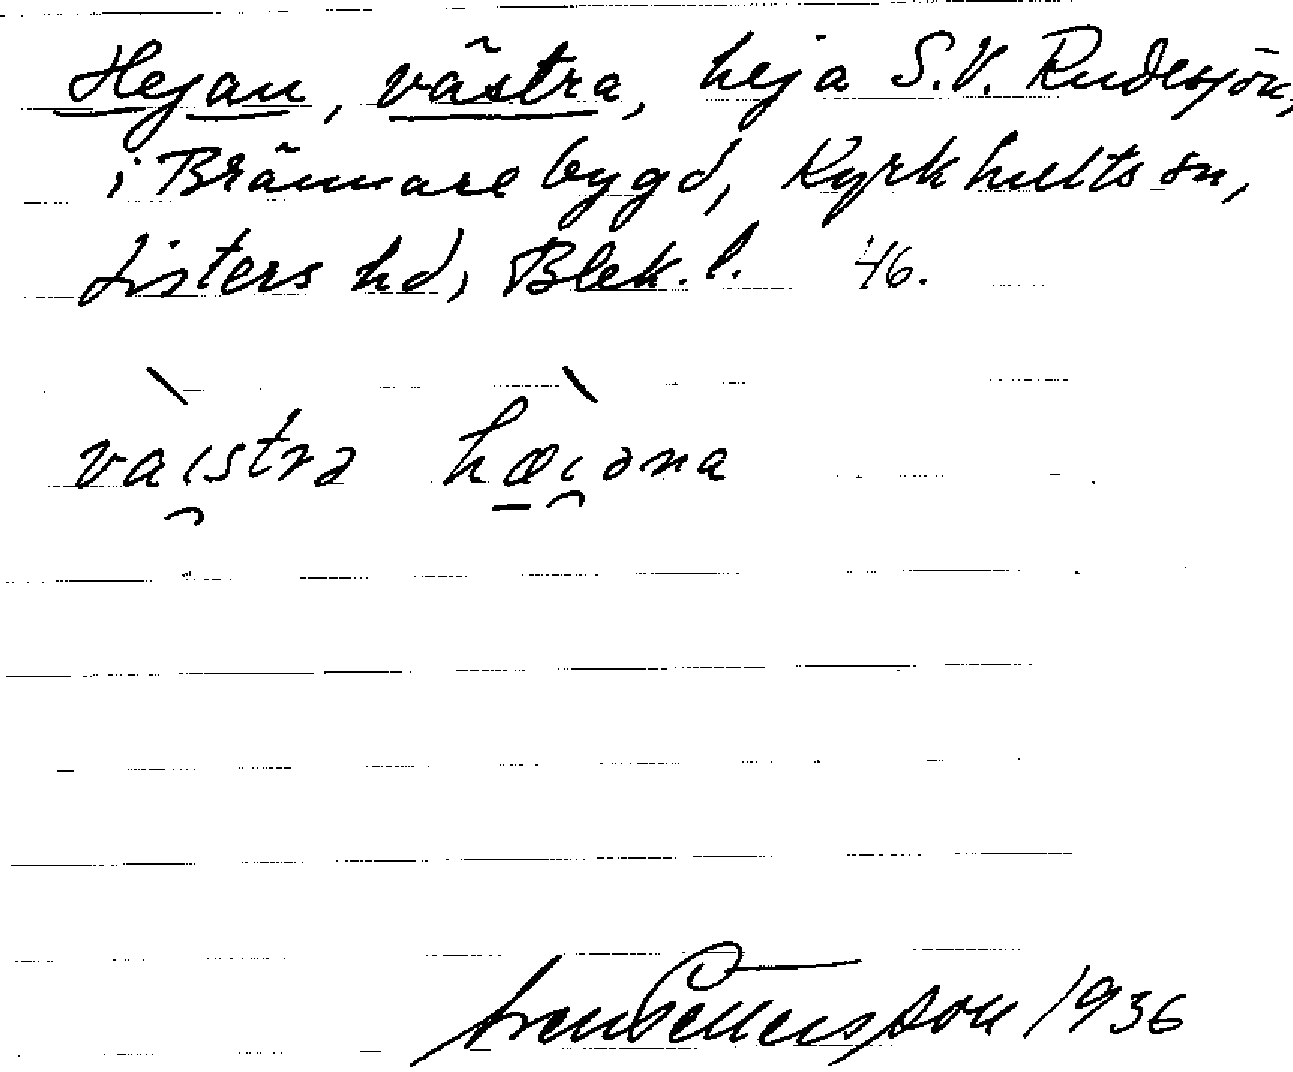 Hejan, västra, heja S.V. Rudesjön,
i Brännarebygd, Kyrkhults sn,
Listers hd, Blek. l. 46.
vä̀i̯strə hæ̀i̯əna
Pettersson 1936